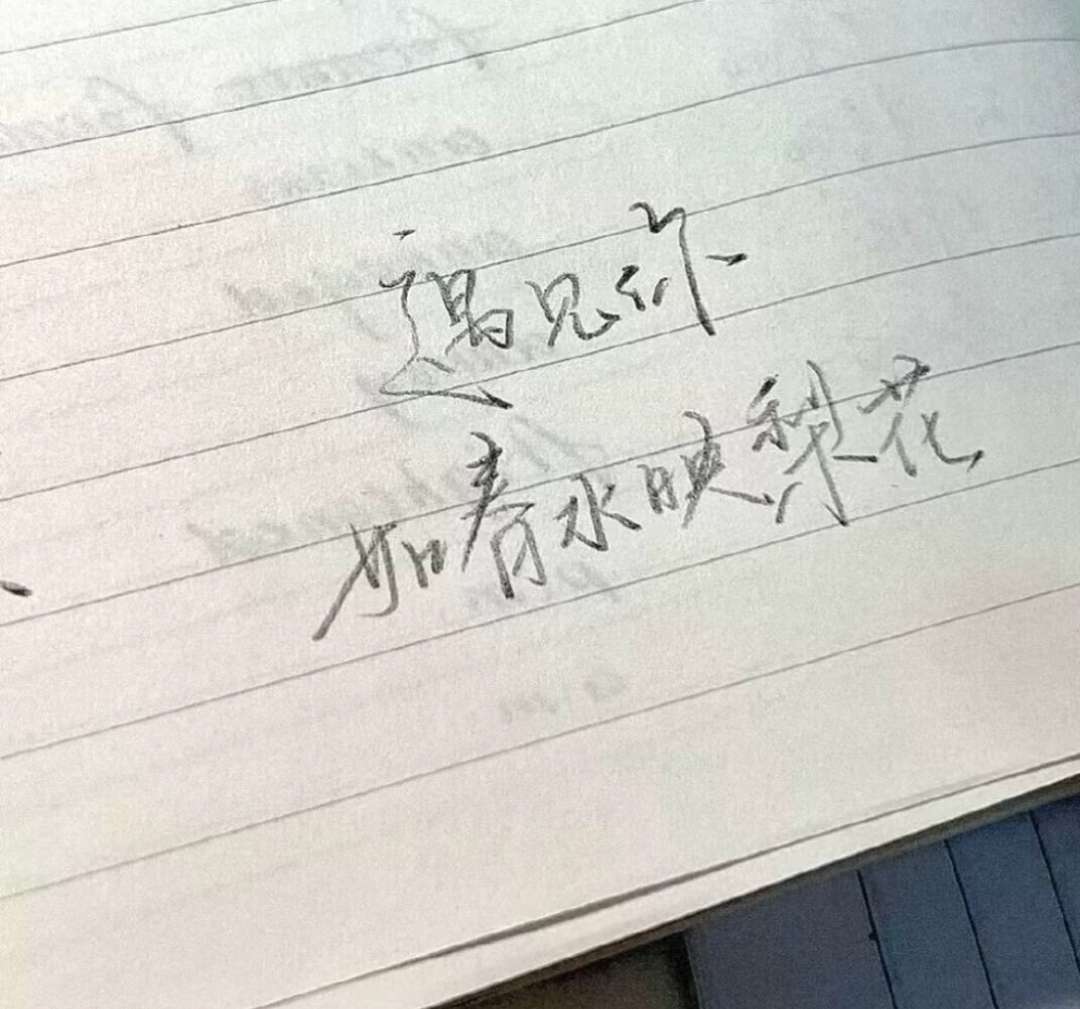 遇见你
如春水映梨花